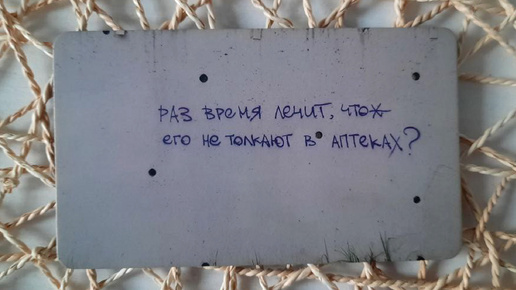 РАЗ ВРЕМЯ ЛЕЧИТ, ЧТОЖ
ЕГО НЕ ТОЛКАЮТ В АПТЕКАХ?